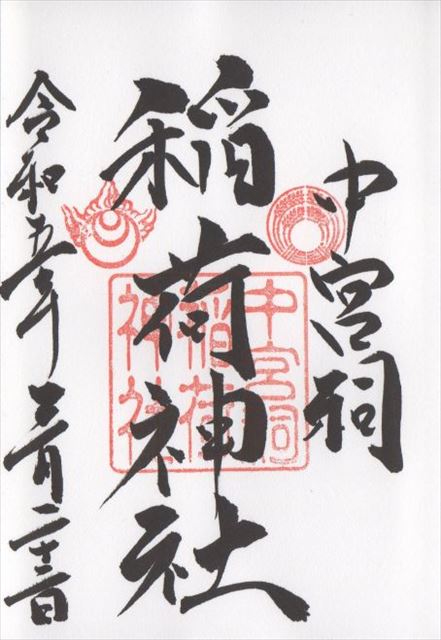 中宮祠
稲荷神社
令和五年三月二十三日
中宮祠
稲荷
神社